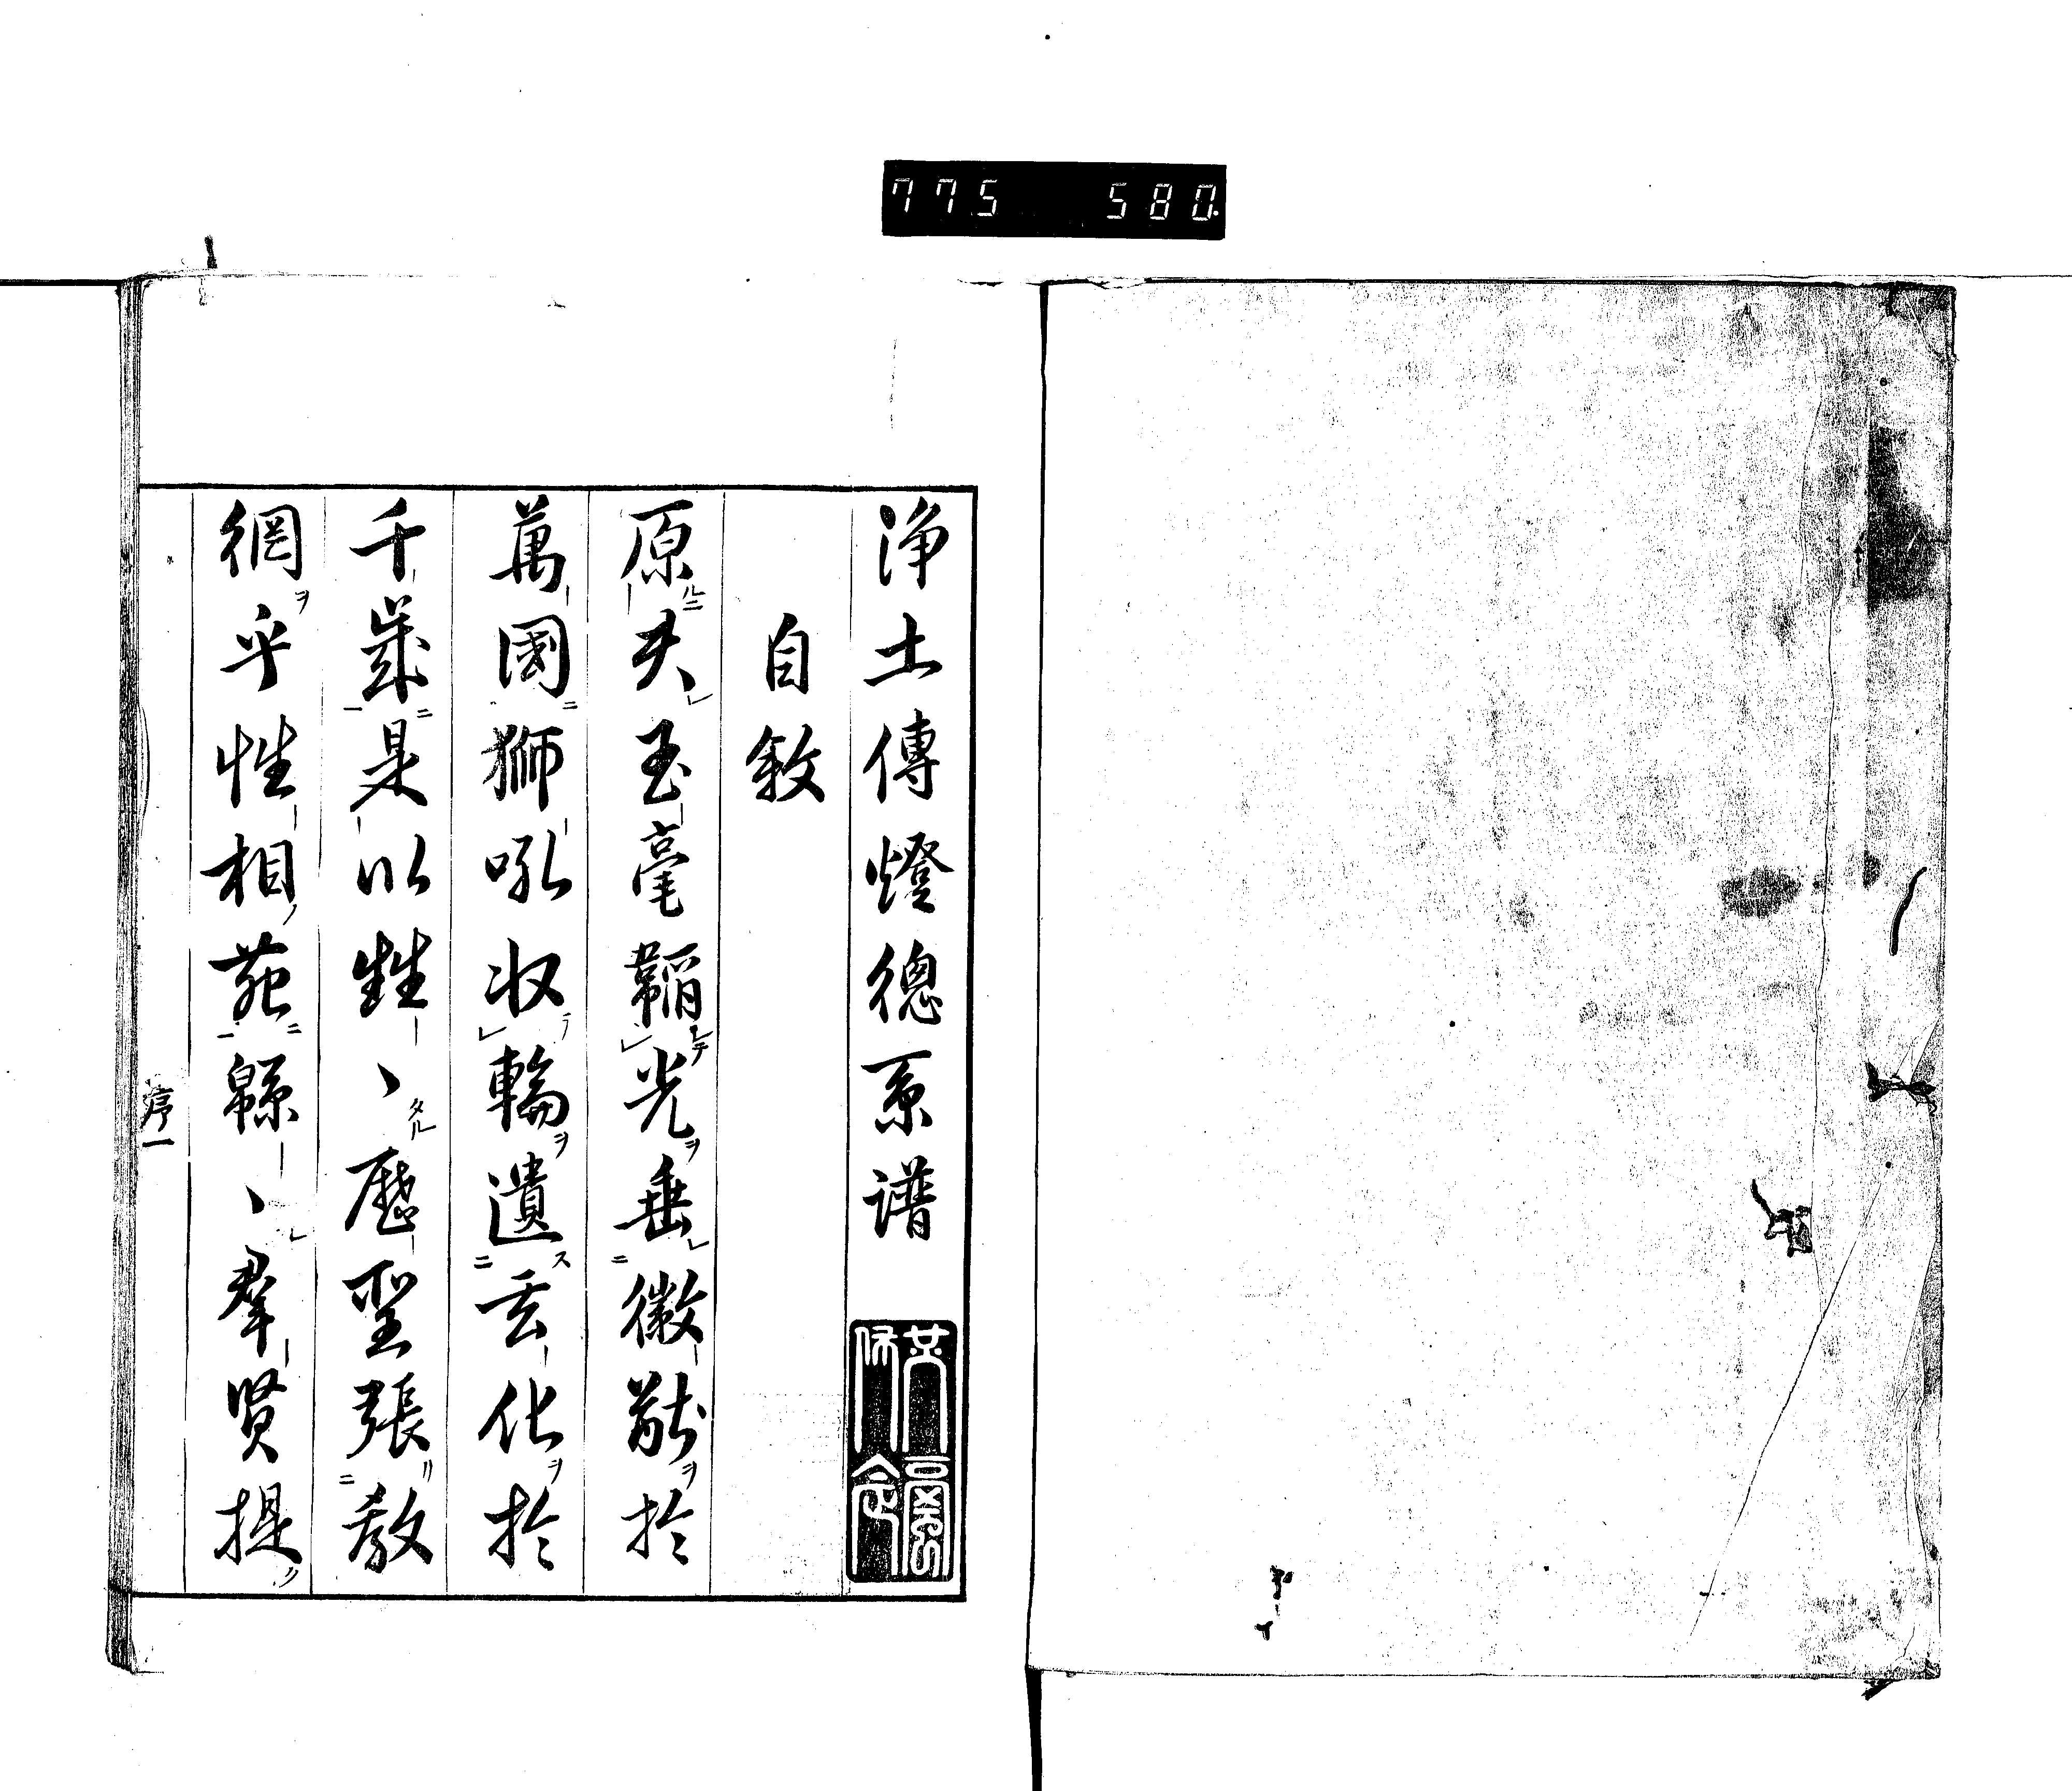 775 580.
淨土傳燈總系譜
自敘
原夫玉毫韜光垂徽猷於
萬國獅吼收輪遺玄化於
千歲是以甡〻歷聖張教
網乎性相苑緜〻羣賢提
序一